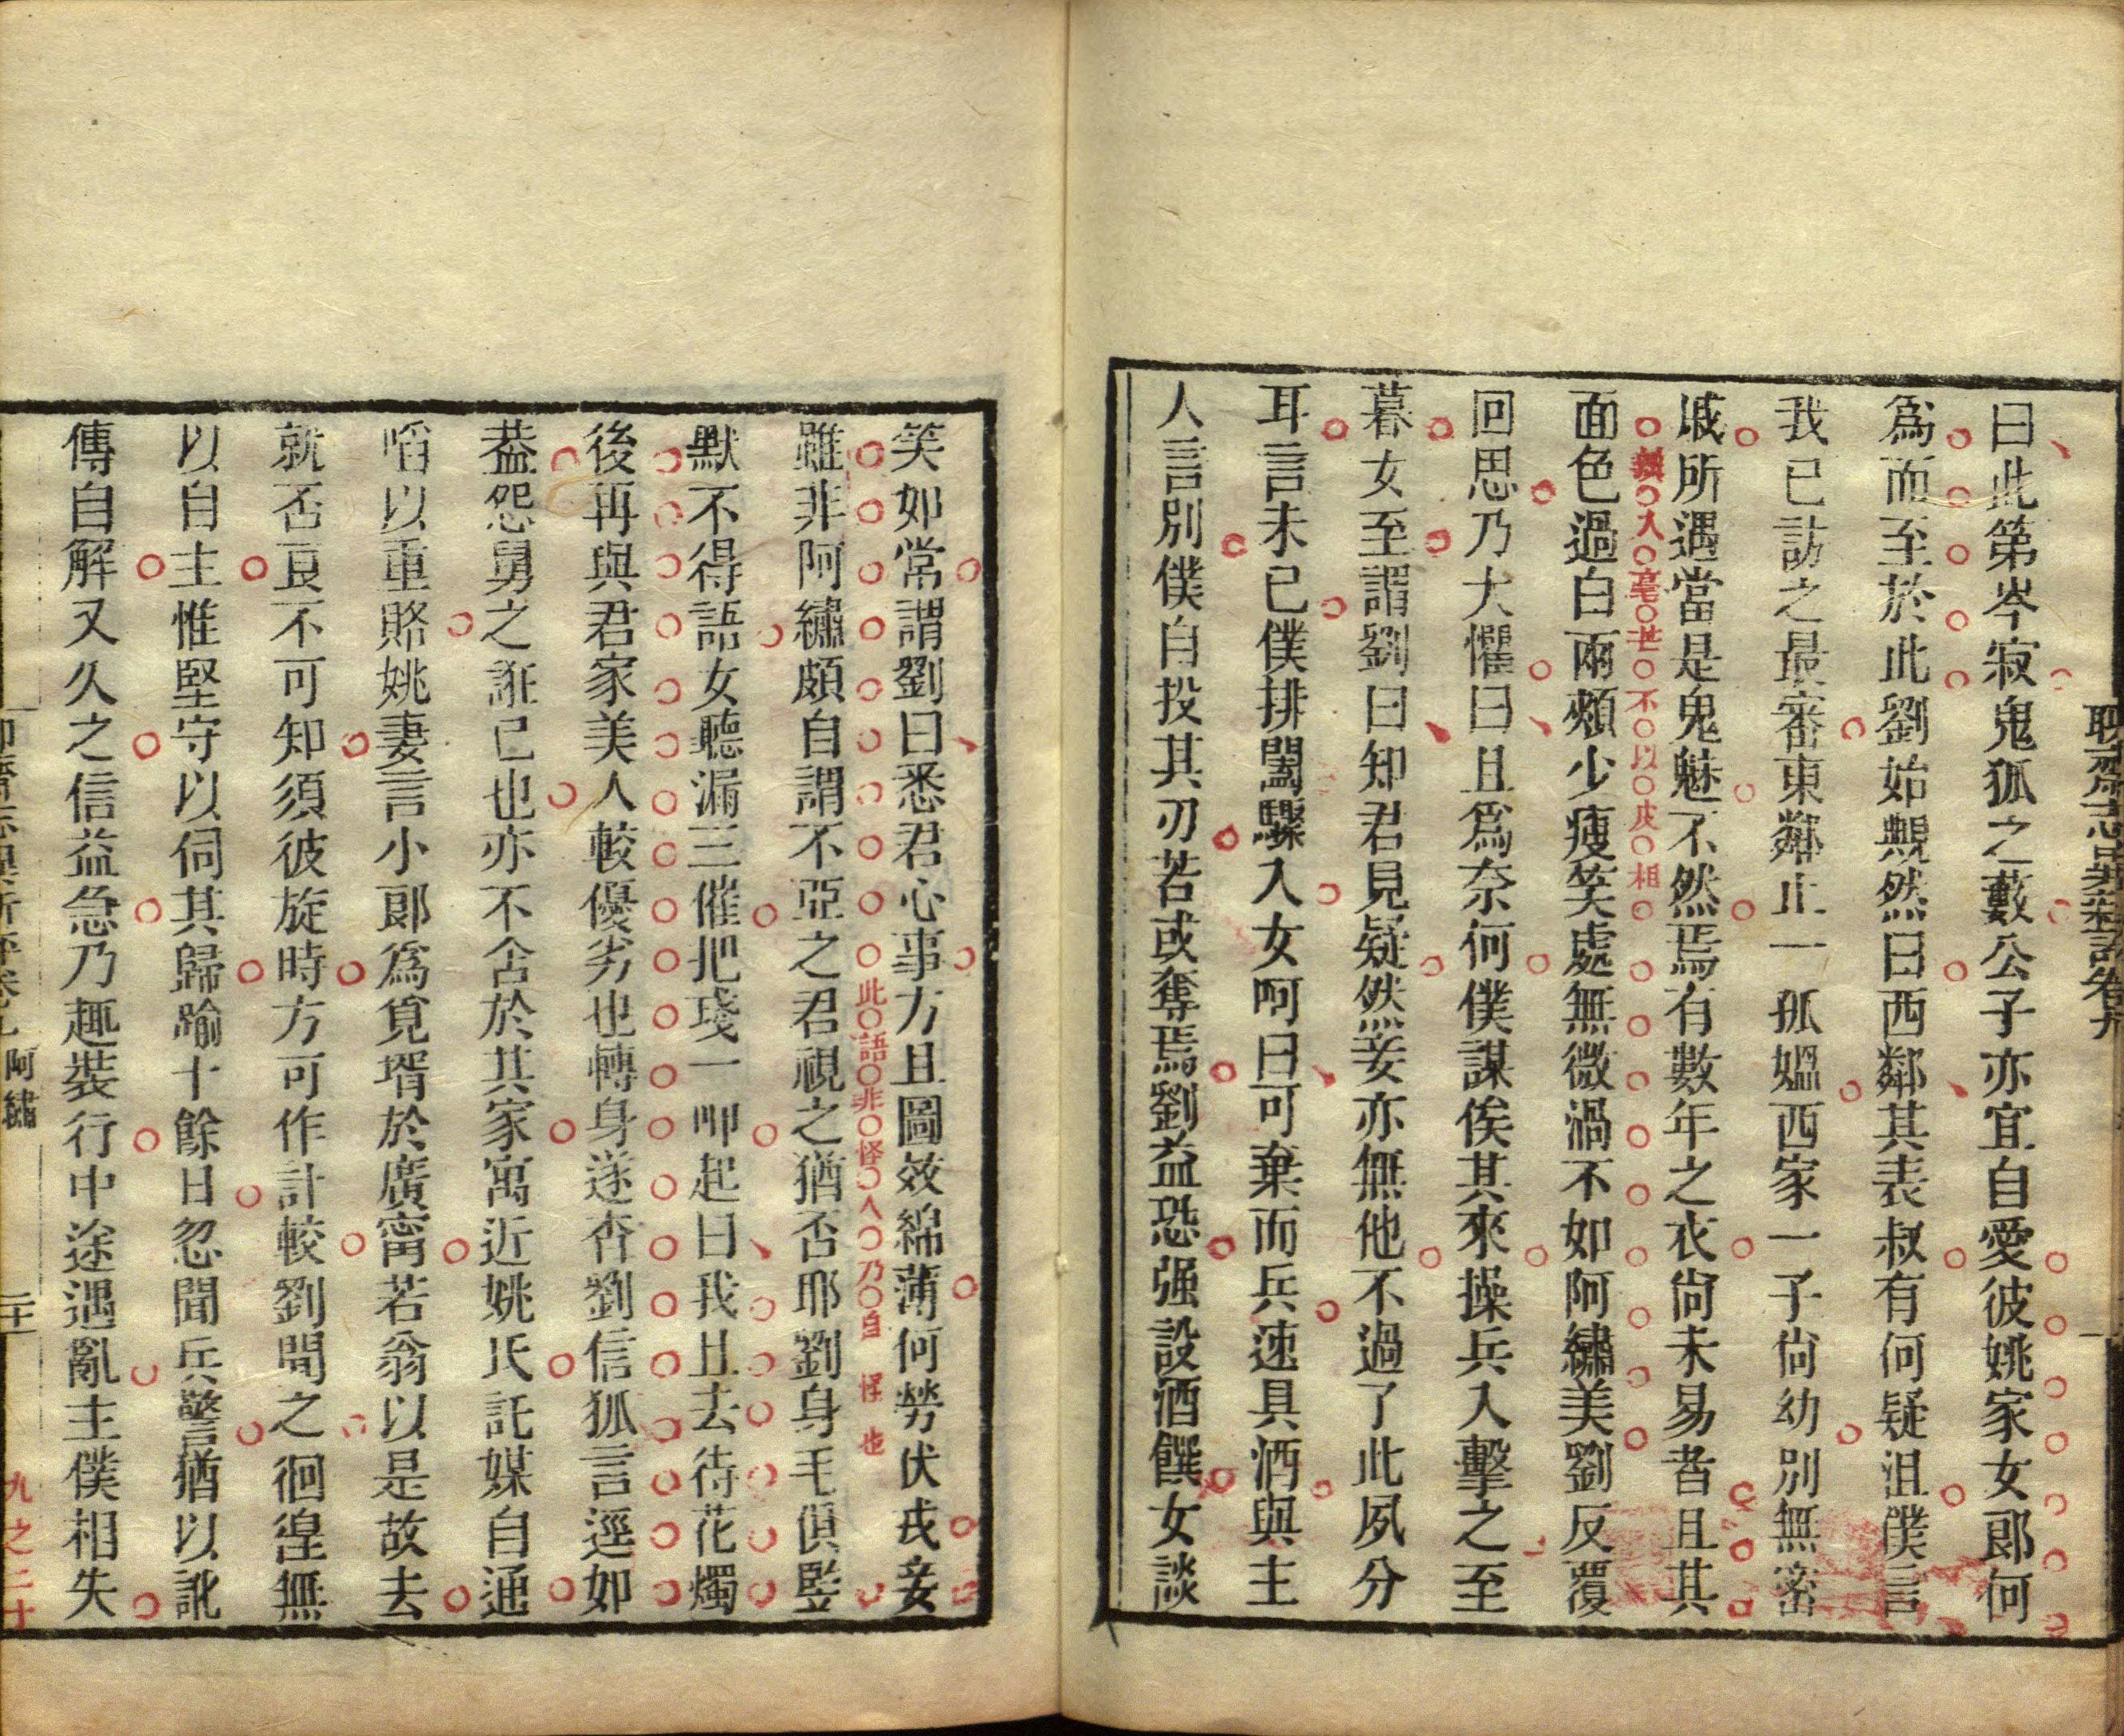 聊齋志異新評卷九
曰此第岑寂鬼狐之藪公子亦宜自愛彼姚家女郎何
爲而至於此劉始靦然曰西鄰其表叔有何疑沮僕言
我已訪之最審東鄰止一孤媼西家一子尙幼別無密
戚所遇當是鬼魅不然焉有數年之衣尙未易者且其
面色過白兩頰少瘦笑處無微渦不如阿繡美劉反覆
回思乃大懼曰且爲奈何僕謀俟其來操兵入擊之至
暮女至謂劉曰知君見疑然妾亦無他不過了此夙分
耳言未已僕排闥驟入女呵曰可棄而兵速具酒與主
人言別僕自投其刃若或奪焉劉益恐强設酒饌女談
笑如常謂劉曰悉君心事方且圖效綿薄何勞伏戎妾
雖非阿繡頗自謂不亞之君視之猶否耶劉身毛俱豎
此語非怪人乃自怪也
默不得語女聽漏三催把琖一呷起曰我且去待花燭
後再與君家美人較優劣也轉身遂杳劉信狐言逕如
葢怨舅之誑已也亦不舍於其家寓近姚氏託媒自通
啗以重賂姚妻言小郎爲覓壻於廣甯若翁以是故去
就否亰不可知須彼旋時方可作計較劉聞之徊徨無
以自主惟堅守以伺其歸踰十餘日忽聞兵警猶以訛
傳自解又久之信益急乃趣裝行中途遇亂主僕相失
阿繡
二十
九之二十